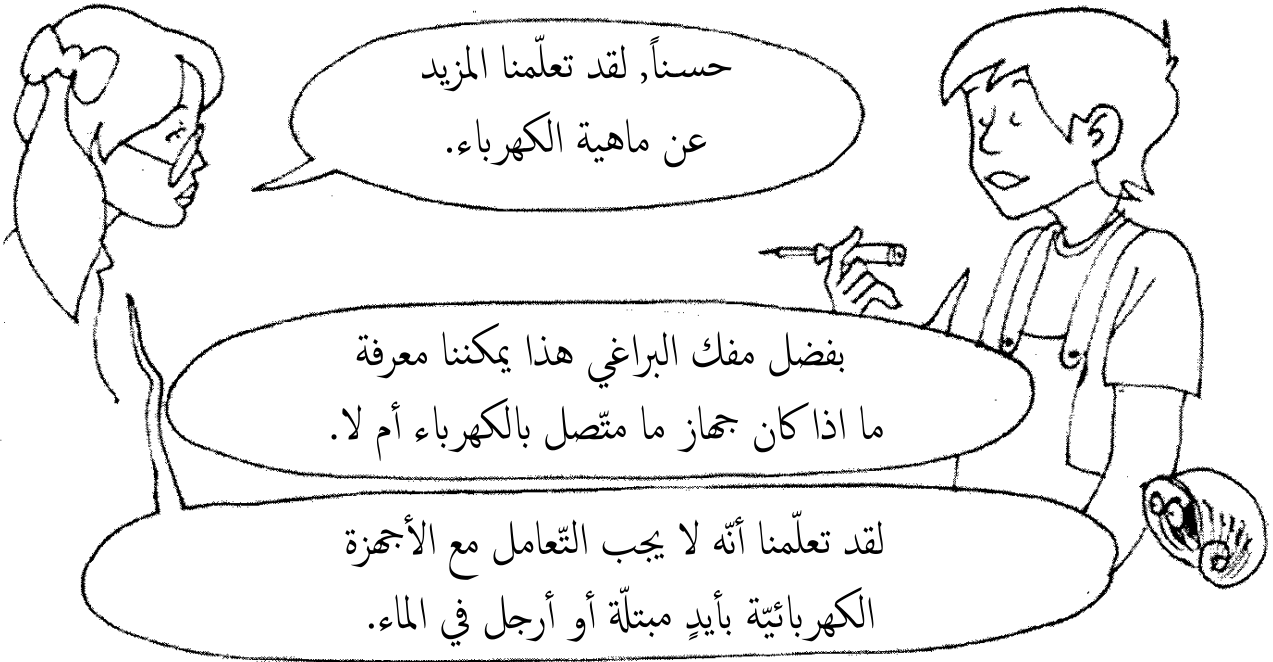 حسناً, لقد تعلّمنا المزيد
عن ماهية الكهرباء.
بفضل مفك البراغي هذا يمكننا معرفة
ما اذا كان جهاز ما متّصل بالكهرباء أم لا.
لقد تعلّمنا أنّه لا يجب التّعامل مع الأجهزة
الكهربائيّة بأيدٍ مبتلّة أو أرجل في الماء.